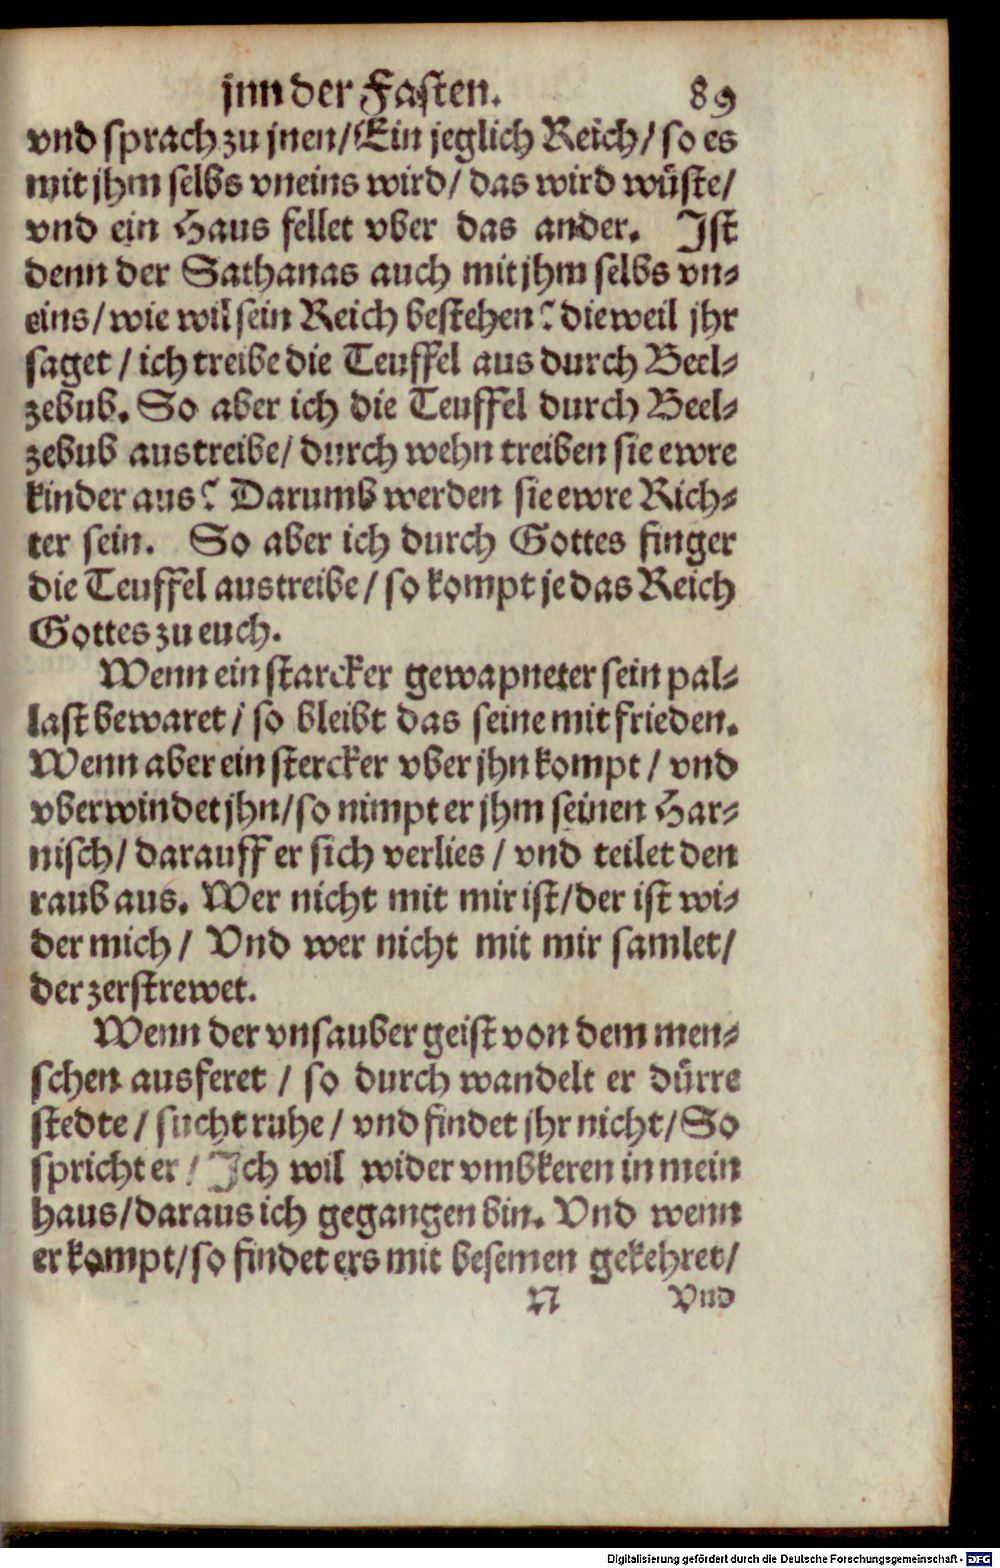 jnn der Fasten. 89
vnd sprach zu jnen/ Ein jeglich Reich/ so es
mit jhm selbs vneins wird/ das wird wüste/
vnd ein Haus fellet vber das ander. Ist
denn der Sathanas auch mit jhm selbs vn-
eins/ wie wil sein Reich bestehen? dieweil jhr
saget/ ich treibe die Teuffel aus durch Beel-
zebub. So aber ich die Teuffel durch Beel-
zebub austreibe/ durch wehn treiben sie ewre
kinder aus? Darumb werden sie ewre Rich-
ter sein. So aber ich durch Gottes finger
die Teuffel austreibe/ so kompt je das Reich
Gottes zu euch.
Wenn ein starcker gewapneter sein pal-
last bewaret/ so bleibt das seine mit frieden.
Wenn aber ein stercker vber jhn kompt/ vnd
vberwindet jhn/ so nimpt er jhm seinen Har-
nisch/ darauff er sich verlies/ vnd teilet den
raub aus. Wer nicht mit mir ist/ der ist wi-
der mich/ Vnd wer nicht mit mir samlet/
der zerstrewet.
Wenn der vnsauber geist von dem men-
schen ausferet/ so durch wandelt er dürre
stedte/ sucht ruhe/ vnd findet jhr nicht/ So
spricht er/ Ich wil wider vmbkeren in mein
haus/ daraus ich gegangen bin. Vnd wenn
er kompt/ so findet ers mit besemen gekehret/
N Vnd
Digitalisierung gefördert durch die Deutsche Forschungsgemeinschaft - DFG